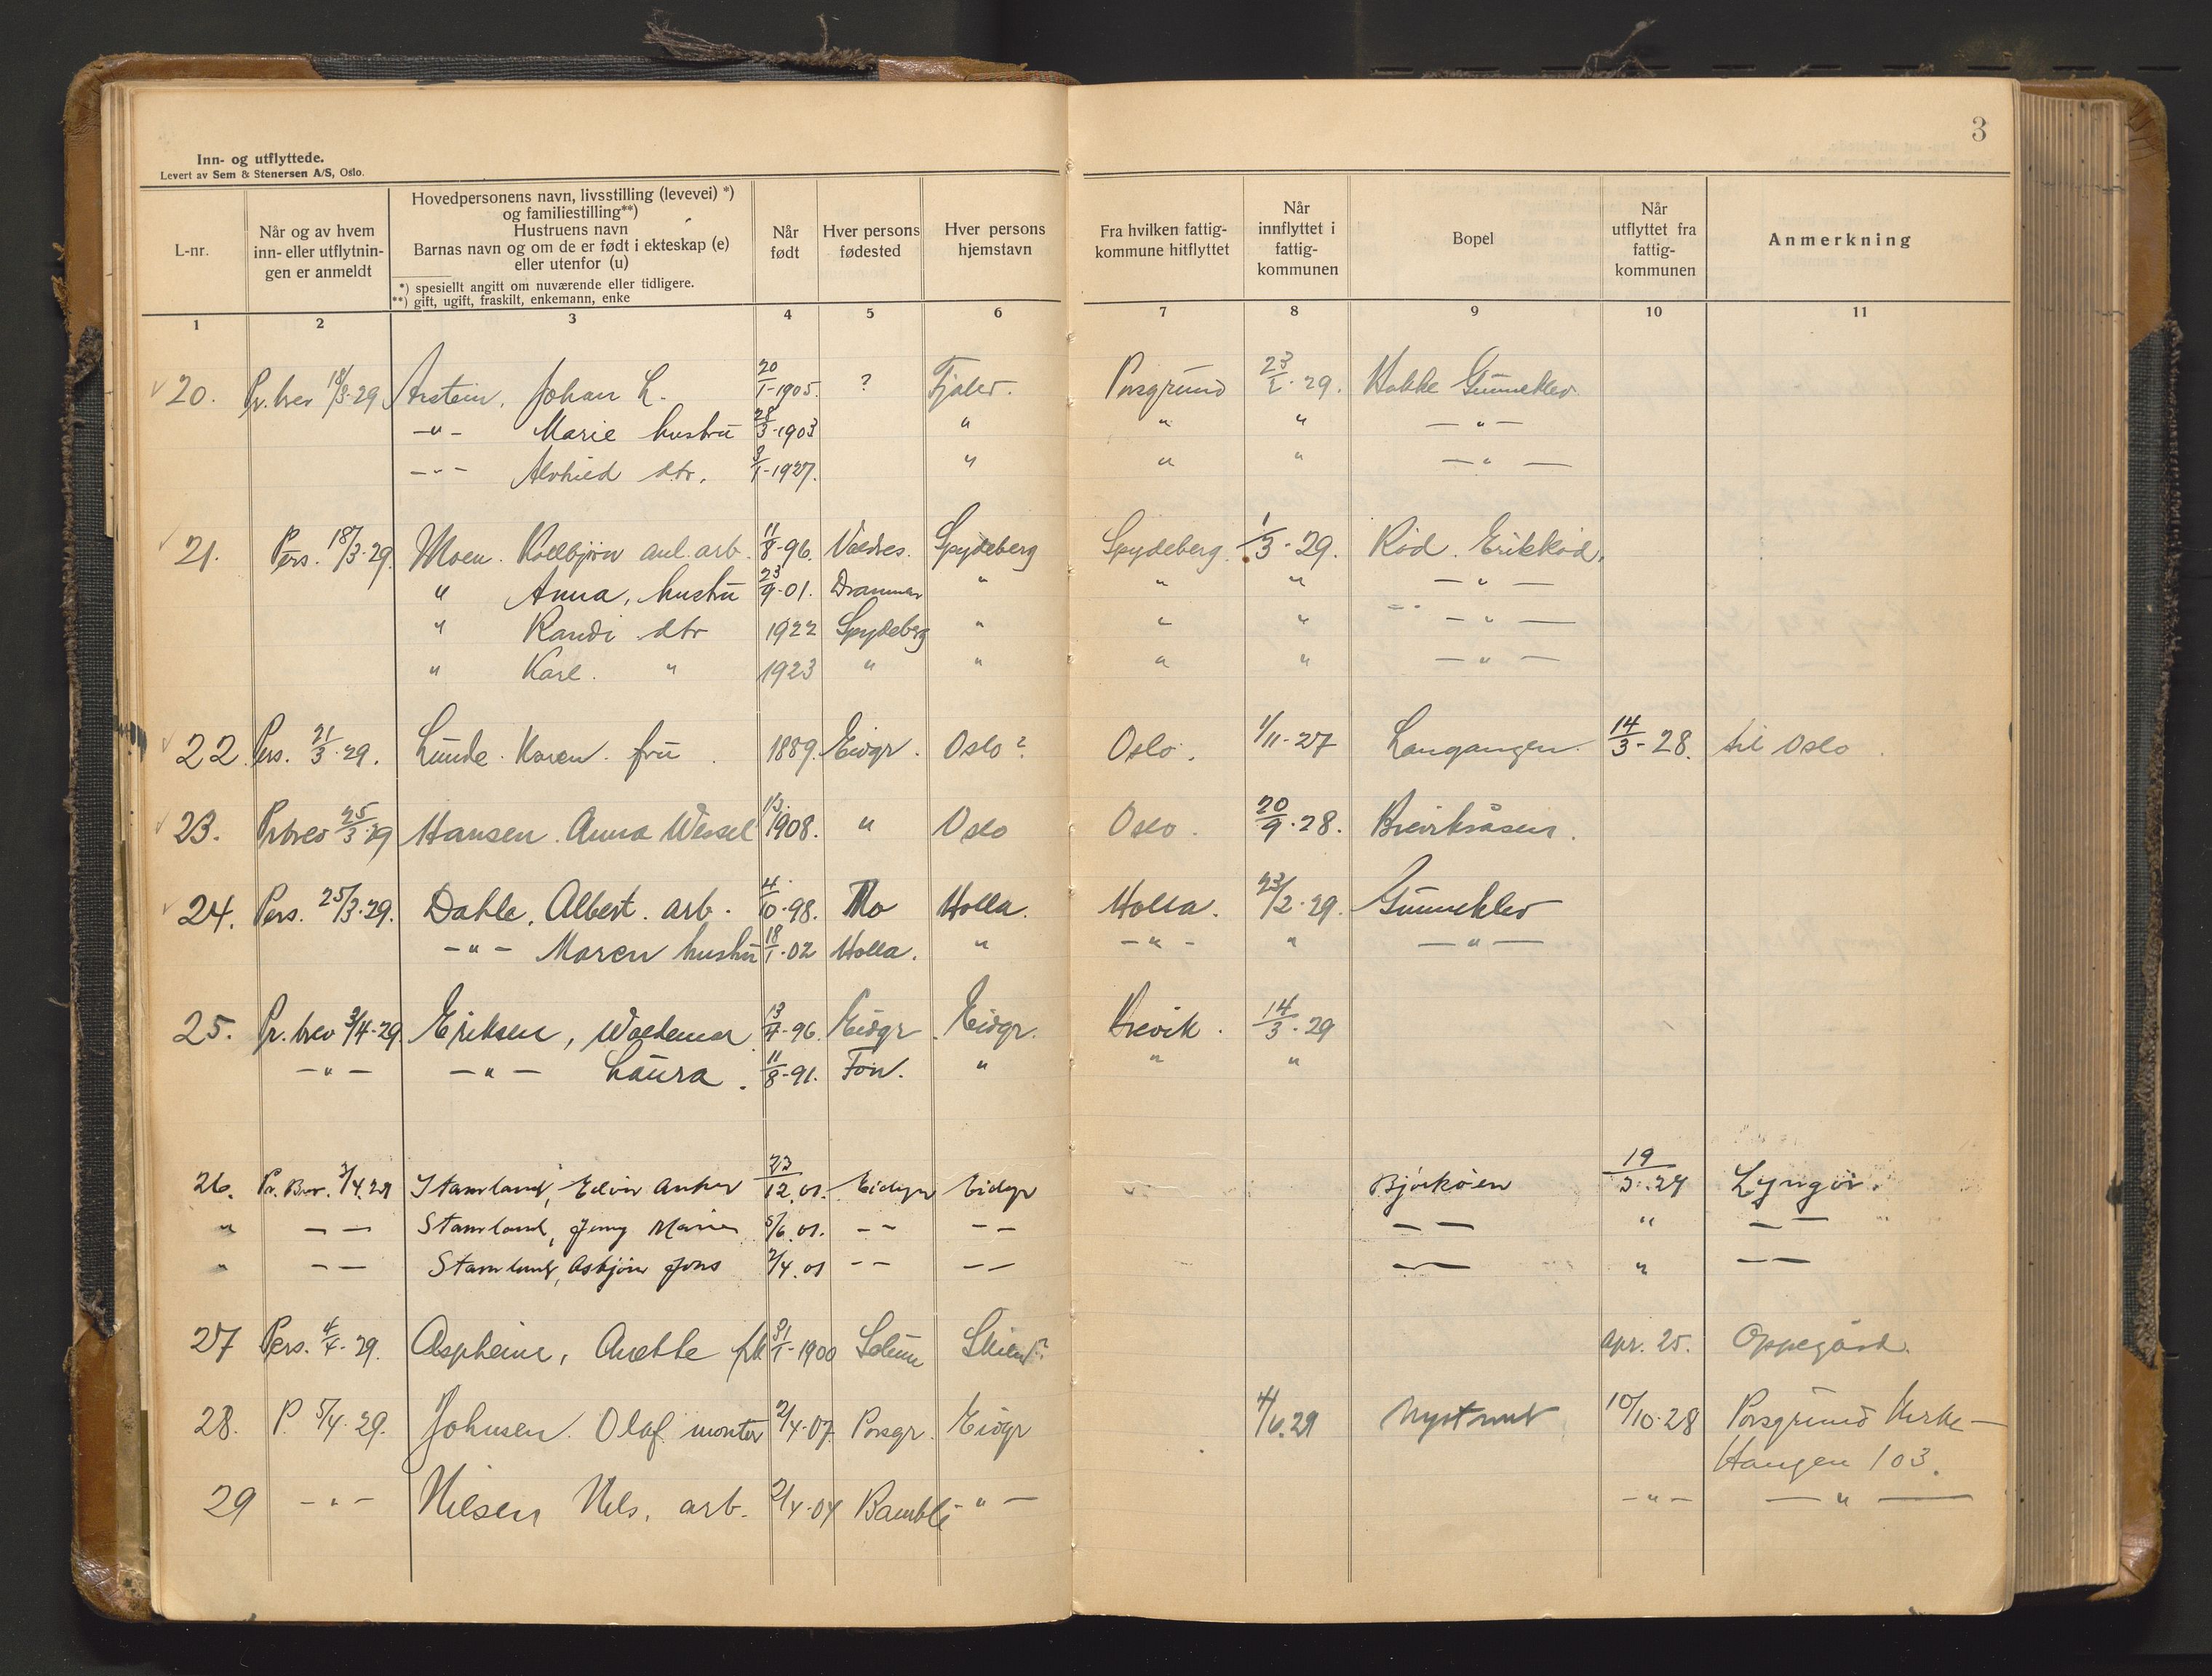 3
Inn- og utflyttede.
Levert av Sem & Stenersen A/S, Oslo.
L-nr. | Når og av hvem inn- eller utflytnin-gen er anmeldt | Hovedpersonens navn, livsstilling (levevei) *) og familiestilling**) Hustruens navn Barnas navn og om de er født i ekteskap (e) eller utenfor (u) *) spesiellt angitt om nuværende eller tidligere. **) gift, ugift, fraskilt, enkemann, enke | Når født | Hver persons fødested | Hver persons hjemstavn | Fra hvilken fattig-kommune hitflyttet | Når innflyttet i fattig-kommunen | Bopel | Når utflyttet fra fattig-kommunen | Anmerkning
1 2 3 4 5 6 7 8 9 10 11
20. Pr. brev 18/3-29 Arstein, Johan L. 20/1-1905. ? Fjaler. Porsgrund 23/1-29. Kokke Gunneklev.
-"- Marie hustru 28/3-1903 " " " -"-
-"- dtr. 3/1-1927. " " " -"-
21. Pers. 18/3-29. Moen. Kolbjørn anl. arb. 11/8-96. Valdres. Spydeberg Spydeberg. 1/3-29. Rød. Erikrød.
" Anna, hustru 23/9-01. Drammen " " " -"-
" Randi dtr 1922 Spydeberg " " " -"-
" Kare. " 1923 " " " " -"-
22. Pers. 21/3-29. Lunde. Karen. fru. 1889. Eidgr. Oslo? Oslo. 1/11-27 Langangen. 14/3-28. til Oslo.
23. Pr brev 25/3-29 Hansen. Anna Wessel 1908. " Oslo Oslo. 20/9-28. Breviksåsen.
24. Pers. 25/3-29. Dahle, Albert. arb. 4/10-98. Mo Holla. Holla. 23/2-29. Gunneklev
-"- Maren hustru 18/1-02 Holla. " -"- " -"-
25. Pr. brev 3/4-29. Eriksen, Waldemar 13/4-96. Eidgr. Eidgr. Brevik. 14/3-29
-"- -"- Laura. 11/8-91. " " "
26. Pr. Brev. 3/4.29 Stamland, Edvin Anker 23/12.01. Eidgr Eidgr Bjørkøen 19/3.29 Lyngør.
" — — Stamland, Jenny Marie 5/6.01. — — — — — — " — —
" — — Stamland, Asbjørn Jons 2/4.01 — — — — — — " — —
27 Pers. 4/4-29. Aspheim, Anette frk 31/1-1900 Solum Skien? apr. 25. Oppegård.
28. P. 5/4-29. Johnsen. Olaf montør 2/4-07. Porsgr. Eidgr 4/6.29 Nystrand 10/10-28 Porsgrund Kirke-
Haugen 103.
29 -"- Nilsen Nils, arb. 2/4-04 Bamble -"- -"- -"-